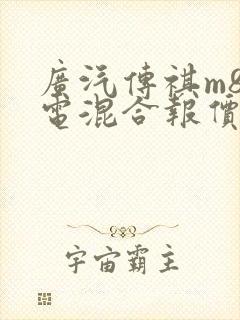 廣汽傳祺m8
電混合報價
宇宙霸主